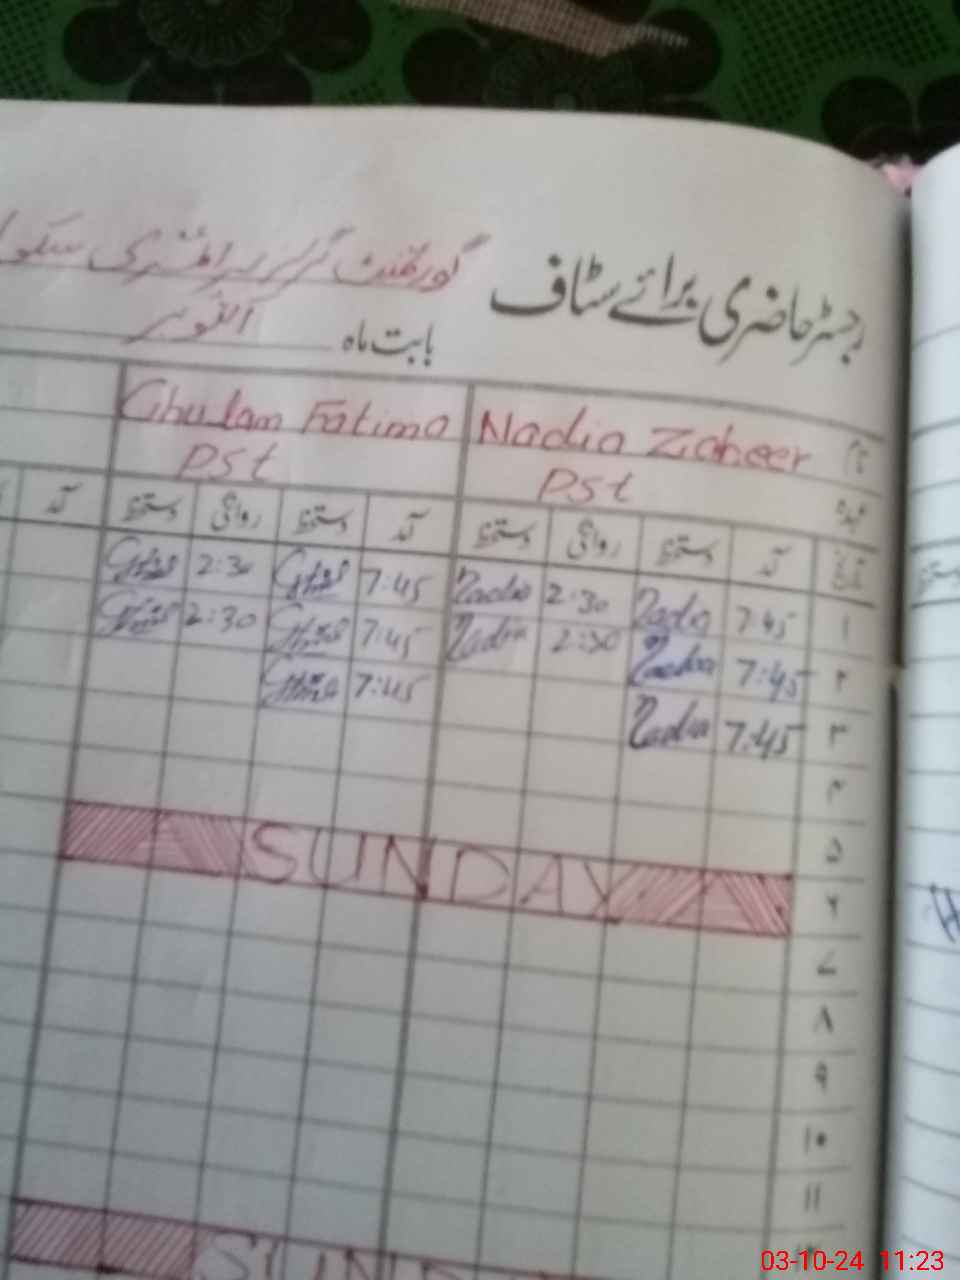 رجسٹر حاضری برائے سٹاف
گورنمنٹ گرلز پرائمری سکول
بابت ماہ اکتوبر
نام Nadia Zaheer Ghulam Fatima
عہدہ PSt PSt
تاریخ آمد دستخط روانگی دستخط آمد دستخط روانگی دستخط آمد
۱ 7:45 Nadia 2:30 Nadia 7:45 2:30
۲ 7:45 Nadia 2:30 Nadia 7:45 2:30
۳ 7:45 Nadia 7:45
۴
۵
۶ SUNDAY
۷
۸
۹
۱۰
۱۱
SUND
03-10-24 11:23